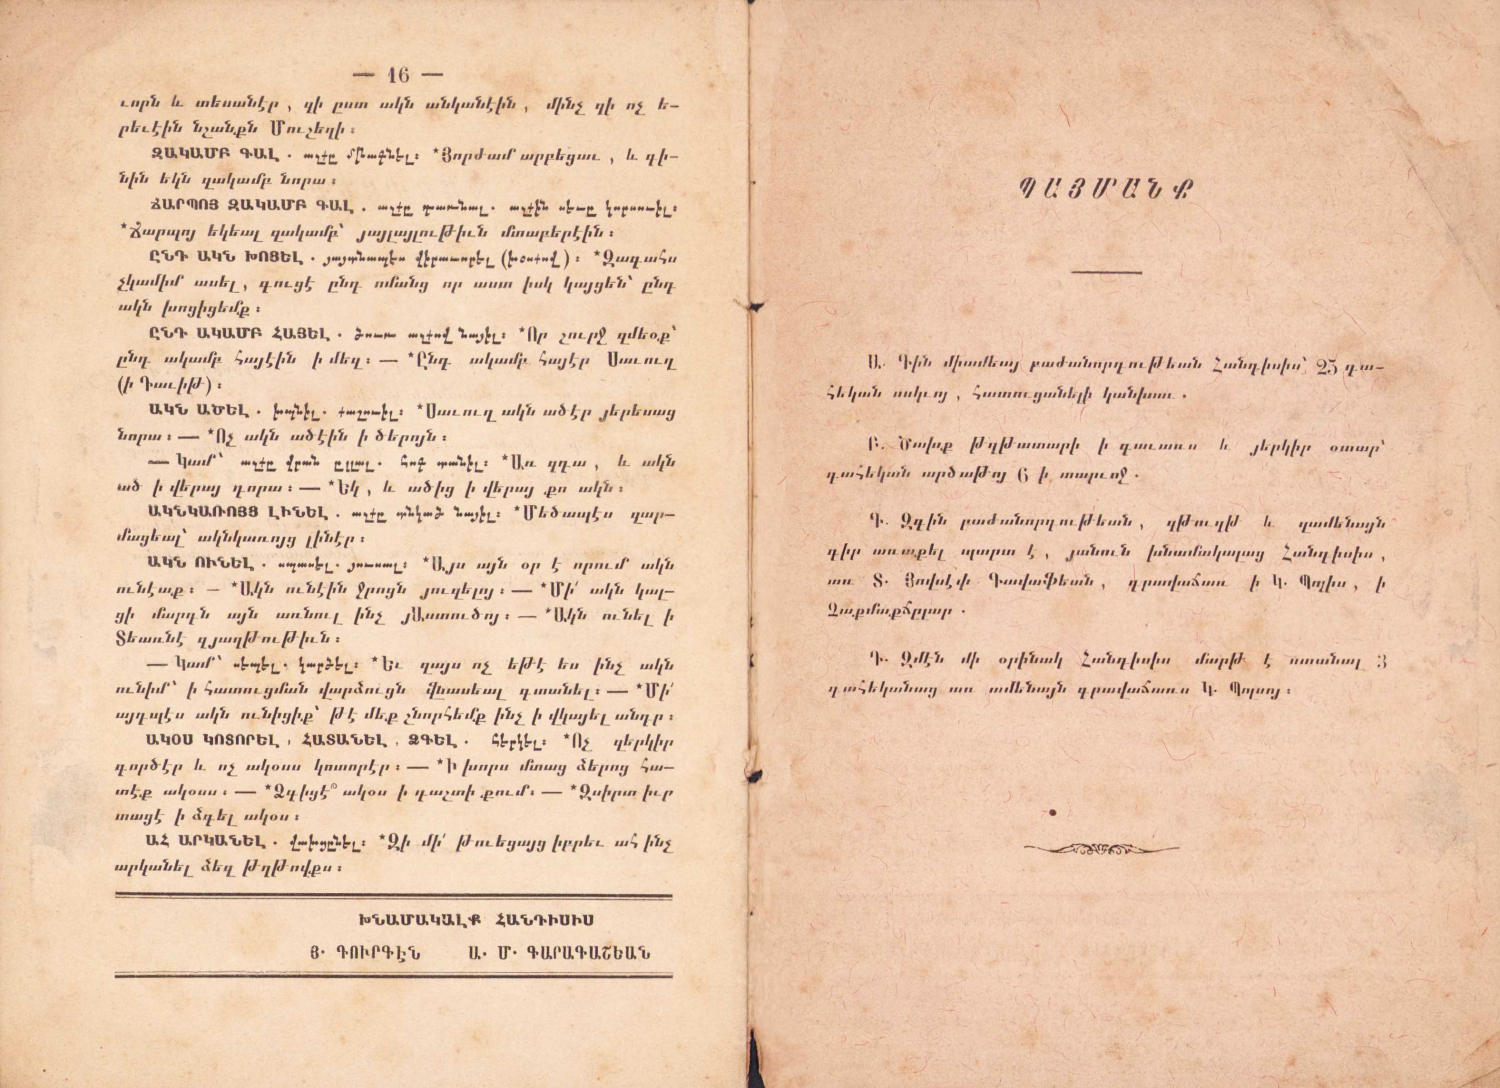 — 16 —
ւորն և տեսանէր, զի ըստ ակն անկանէին, մինչ զի ոչ ե-
րեւէին նշանքն Մուշեղի։
ԶԱԿԱՄԲ ԳԱԼ. աչքը մնացնել։ *Յորժամ արբեցաւ, և գի-
նին եկն զակամբ նորա։
ՃԱՐՊՈՅ ԶԱԿԱՄԲ ԳԱԼ. աչքը գառնալ. աչքին սեւը կորսուիլ։
*Ճարպոյ եկեալ զակամբ՝ յայլայլութիւն մտաբերէին։
ԸՆԴ ԱԿՆ ԽՈՑԵԼ. յայտնապէս վիրաւորել (խօսքով)։ *Զագահս
չկամիմ ասել, գուցէ ընդ ոմանց որ աստ իսկ կայցեն՝ ընդ
ակն խոցիցեմք։
ԸՆԴ ԱԿԱՄԲ ՀԱՅԵԼ. ծուռ աչքով նայիլ։ *Որ շուրջ զմեօք՝
ընդ ակամբ հայէին ի մեզ։ — *Ընդ ակամբ հայէր Սաւուղ
(ի Դաւիթ)։
ԱԿՆ ԱԾԵԼ. խպնիլ. քաշուիլ։ *Սաւուղ ակն ածէր յերեսաց
նորա։ — *Ոչ ակն ածէին ի ծերոյն։
— Կամ՝ աչքը վրան ըլլալ. հոգ տանիլ։ *Առ զդա, և ակն
ած ի վերայ դորա։ — *Եկ, և ածից ի վերայ քո ակն։
ԱԿՆԿԱՌՈՅՑ ԼԻՆԵԼ. աչքը տնկած նայիլ։ *Մեծապէս զար-
մացեալ՝ ակնկառոյց լինէր։
ԱԿՆ ՈՒՆԵԼ. սպասել. յուսալ։ *Այս այն օր է որում ակն
ունէաք։ — *Ակն ունէին ջրոցն յուզելոյ։ — *Մի՛ ակն կալ-
ցի մարդն այն առնուլ ինչ յԱստուծոյ։ — *Ակն ունել ի
Տեառնէ զյաղթութիւն։
— Կամ՝ սեպել. կարծել։ *Եւ զայս ոչ եթէ ես ինչ ակն
ունիմ՝ ի հատուցման վարձուցն վնասեալ գտանել։ — *Մի՛
այդպէս ակն ունիցիք՝ թէ մեք շնորհեմք ինչ ի վկայել անդր։
ԱԿՕՍ ԿՈՏՈՐԵԼ, ՀԱՏԱՆԵԼ, ՁԳԵԼ. հերկել։ *Ոչ զերկիր
գործէր և ոչ ակօսս կոտորէր։ — *Ի խորս մտաց ձերոց հա-
տէք ակօսս։ — *Ձգիցէ՞ ակօս ի դաշտի քում։ — *Զսիրտ իւր
տացէ ի ձգել ակօս։
ԱՀ ԱՐԿԱՆԵԼ. վախցընել։ *Զի մի՛ թուեցայց իբրեւ ահ ինչ
արկանել ձեզ թղթովքս։
ԽՆԱՄԱԿԱԼՔ ՀԱՆԴԻՍԻՍ
Յ. ԳՈՒՐԳԷՆ Ա. Մ. ԳԱՐԱԳԱՇԵԱՆ
ՊԱՅՄԱՆՔ
Ա. Գին միամեայ բաժանորդութեան Հանդիսիս՝ 25 դա-
հեկան ոսկւոյ, հատուցանելի կանխաւ.
Բ. Ծախք թղթատարի ի գաւառս և յերկիր օտար՝
դահեկան արծաթոյ 6 ի տարւոջ.
Գ. Զգին բաժանորդութեան, զթուղթ և զամենայն
գիր առաքել պարտ է, յանուն խնամակալաց Հանդիսիս,
առ Տ. Յովսէփ Գավաֆեան, գրավաճառ ի Կ. Պօլիս, ի
Չաքմաքճըլար.
Դ. Զմէն մի օրինակ Հանդիսիս մարթ է ստանալ 3
դահեկանաց առ ամենայն գրավաճառս Կ. Պօլսոյ։